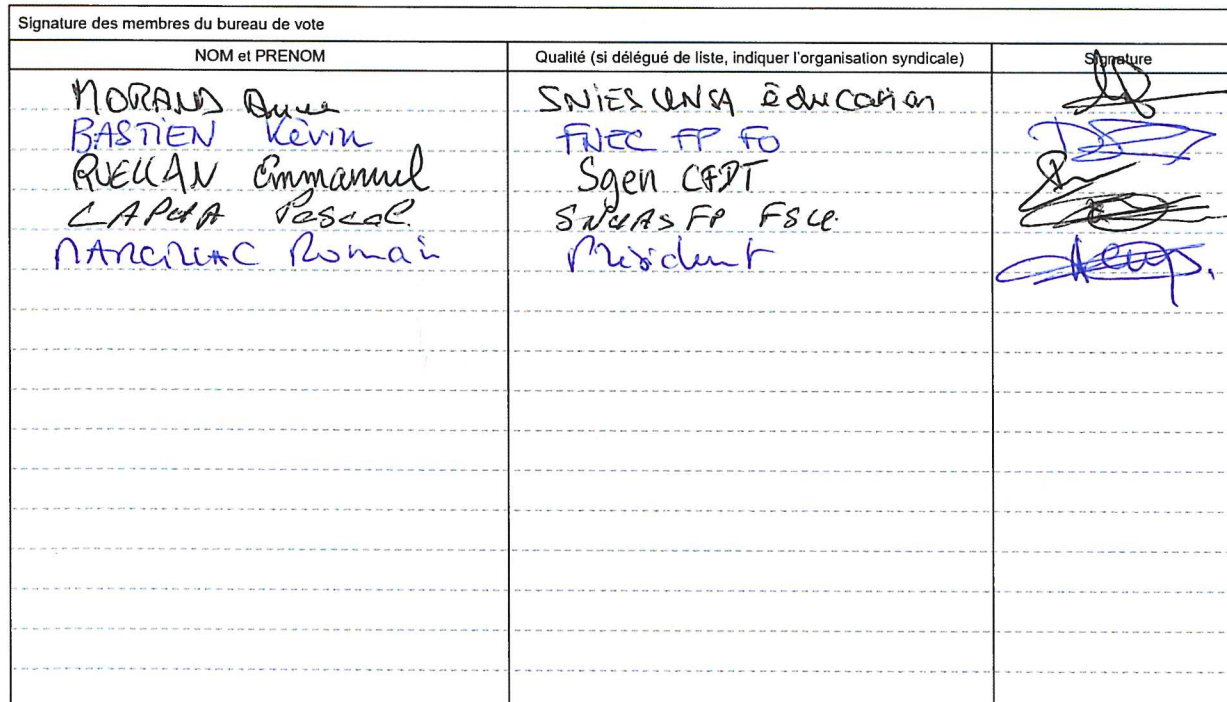 Signature des membres du bureau de vote
NOM et PRENOM Qualité (si délégué de liste, indiquer l'organisation syndicale) Signature
MORAND Anne SNIES UNSA Éducation
BASTIEN Kévin FNEC FP FO
Emmanuel Sgen CFDT
Pascal SNUAS FP FSU
Romain Président